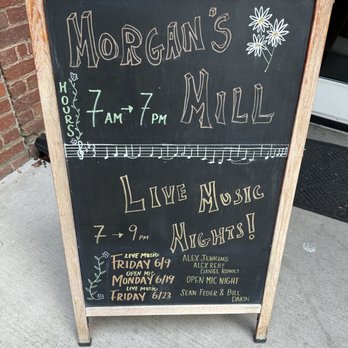 MORGAN'S
MILL
HOURS
7 AM → 7 PM
LIVE MUSIC
NIGHTS!
7 → 9 PM
LIVE MUSIC
FRIDAY 6/9
ALEX JENKINS
ALEX REIFF
DANIEL ROWDY
OPEN MIC
MONDAY 6/19
OPEN MIC NIGHT
LIVE MUSIC
FRIDAY 6/23
SEAN FEDER & BILL
DAKIN